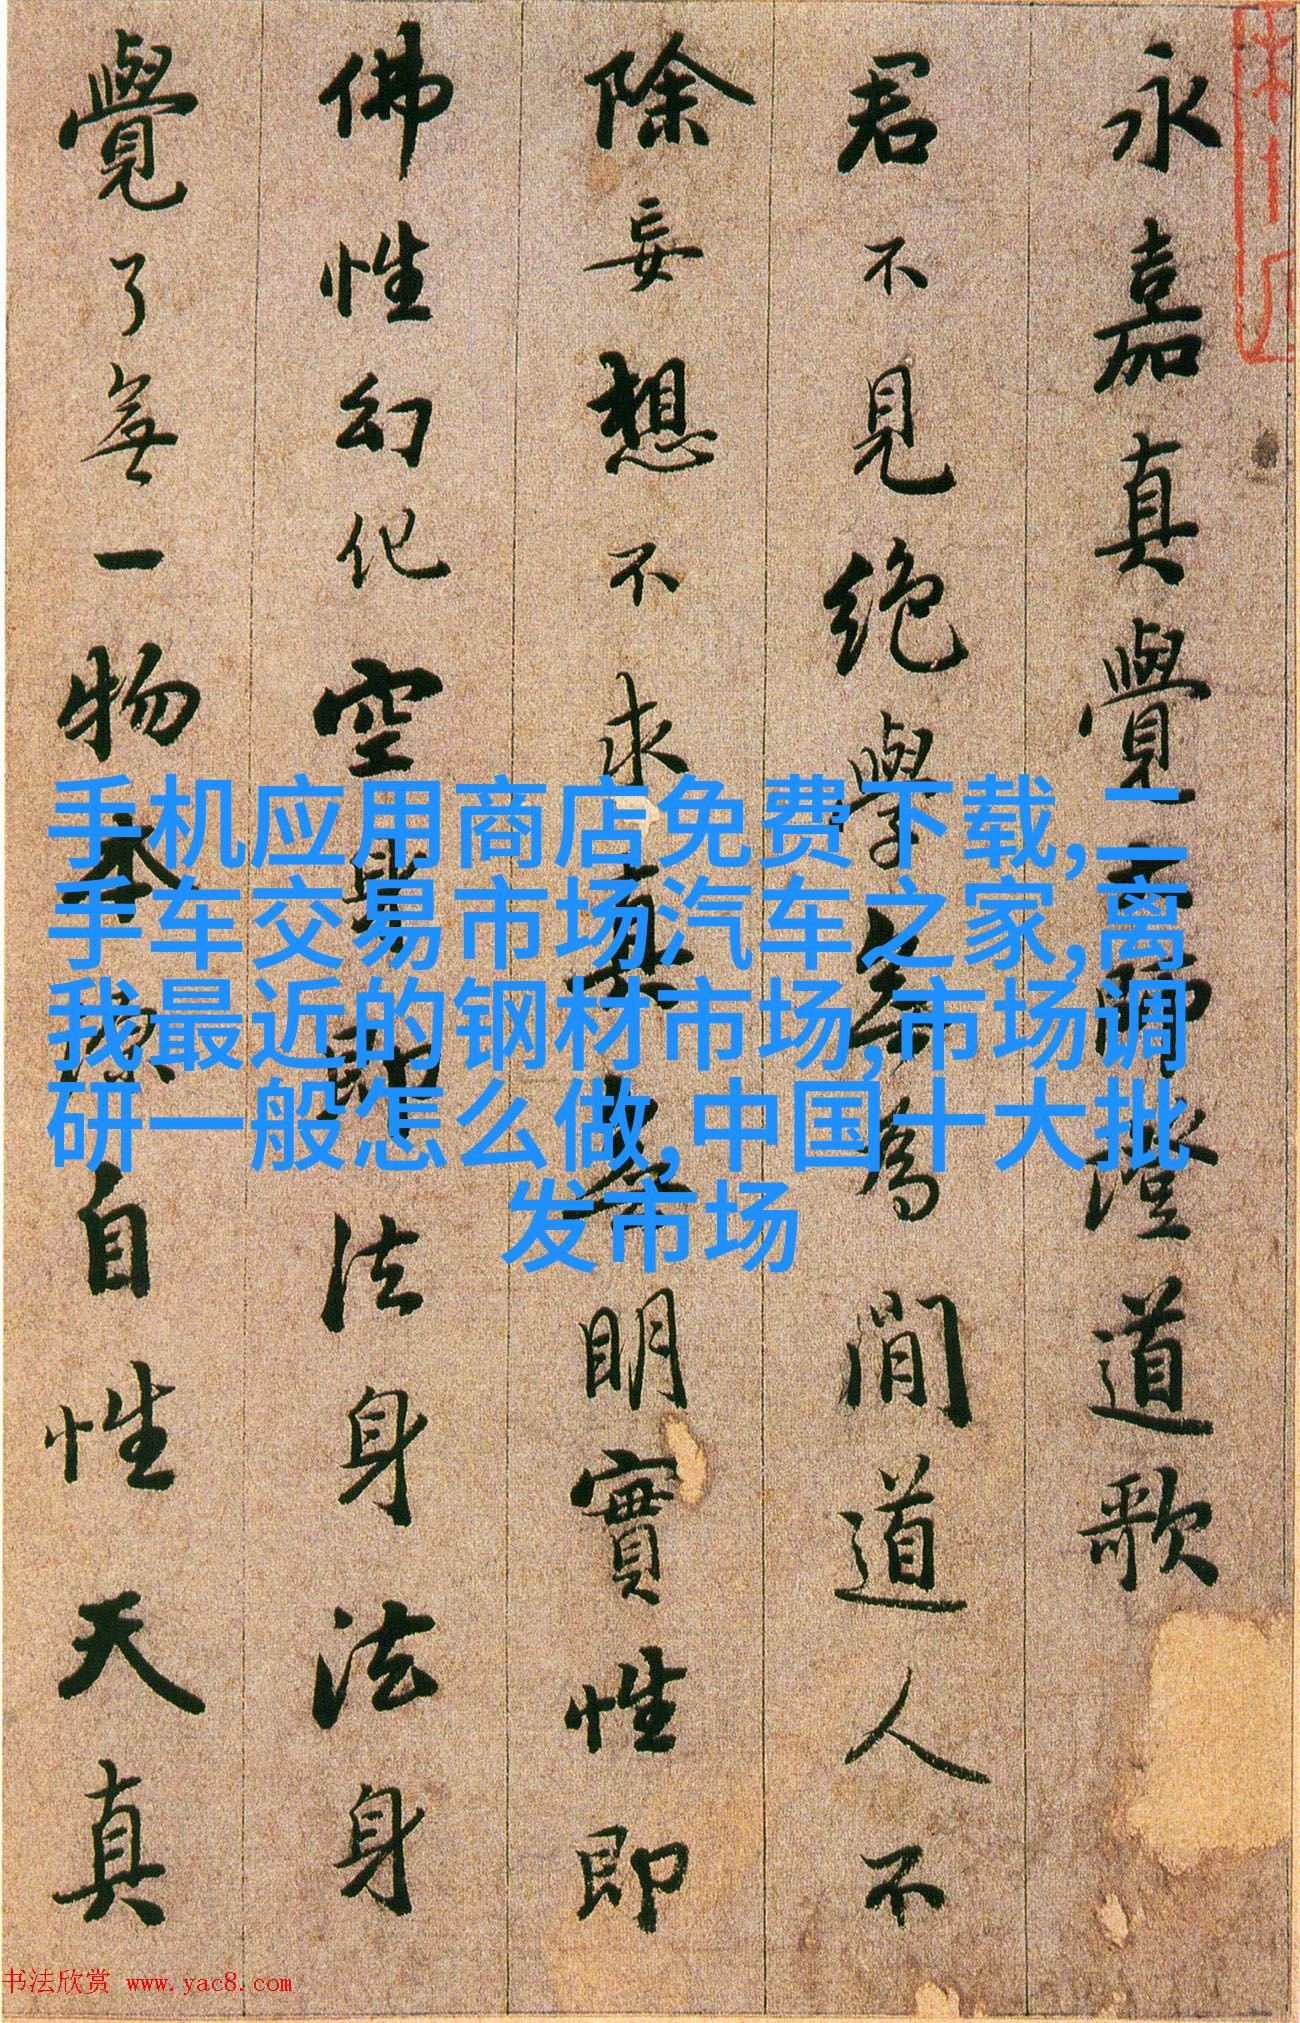 永嘉真覺大師澄道歌
君不見絕學無為閒道人不
除妄想不求真無明實性即
佛性幻化空身即法身法身
覺了無一物本源自性天真
手机应用商店免费下载,二
手车交易市场汽车之家,离
我最近的钢材市场,市场调
研一般怎么做,中国十大批
发市场
书法欣赏 www.yac8.com